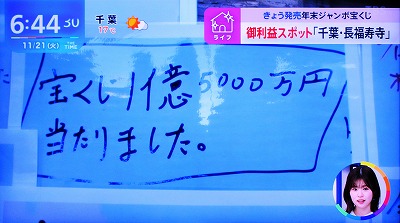 6:44
11/21(火)
THE TIME
千葉
17℃
ライフ
きょう発売年末ジャンボ宝くじ
御利益スポット「千葉・長福寿寺」
宝くじ1億5000万円
当たりました。